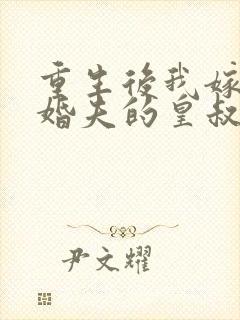 重生后我嫁
婚夫的皇叔
尹文耀